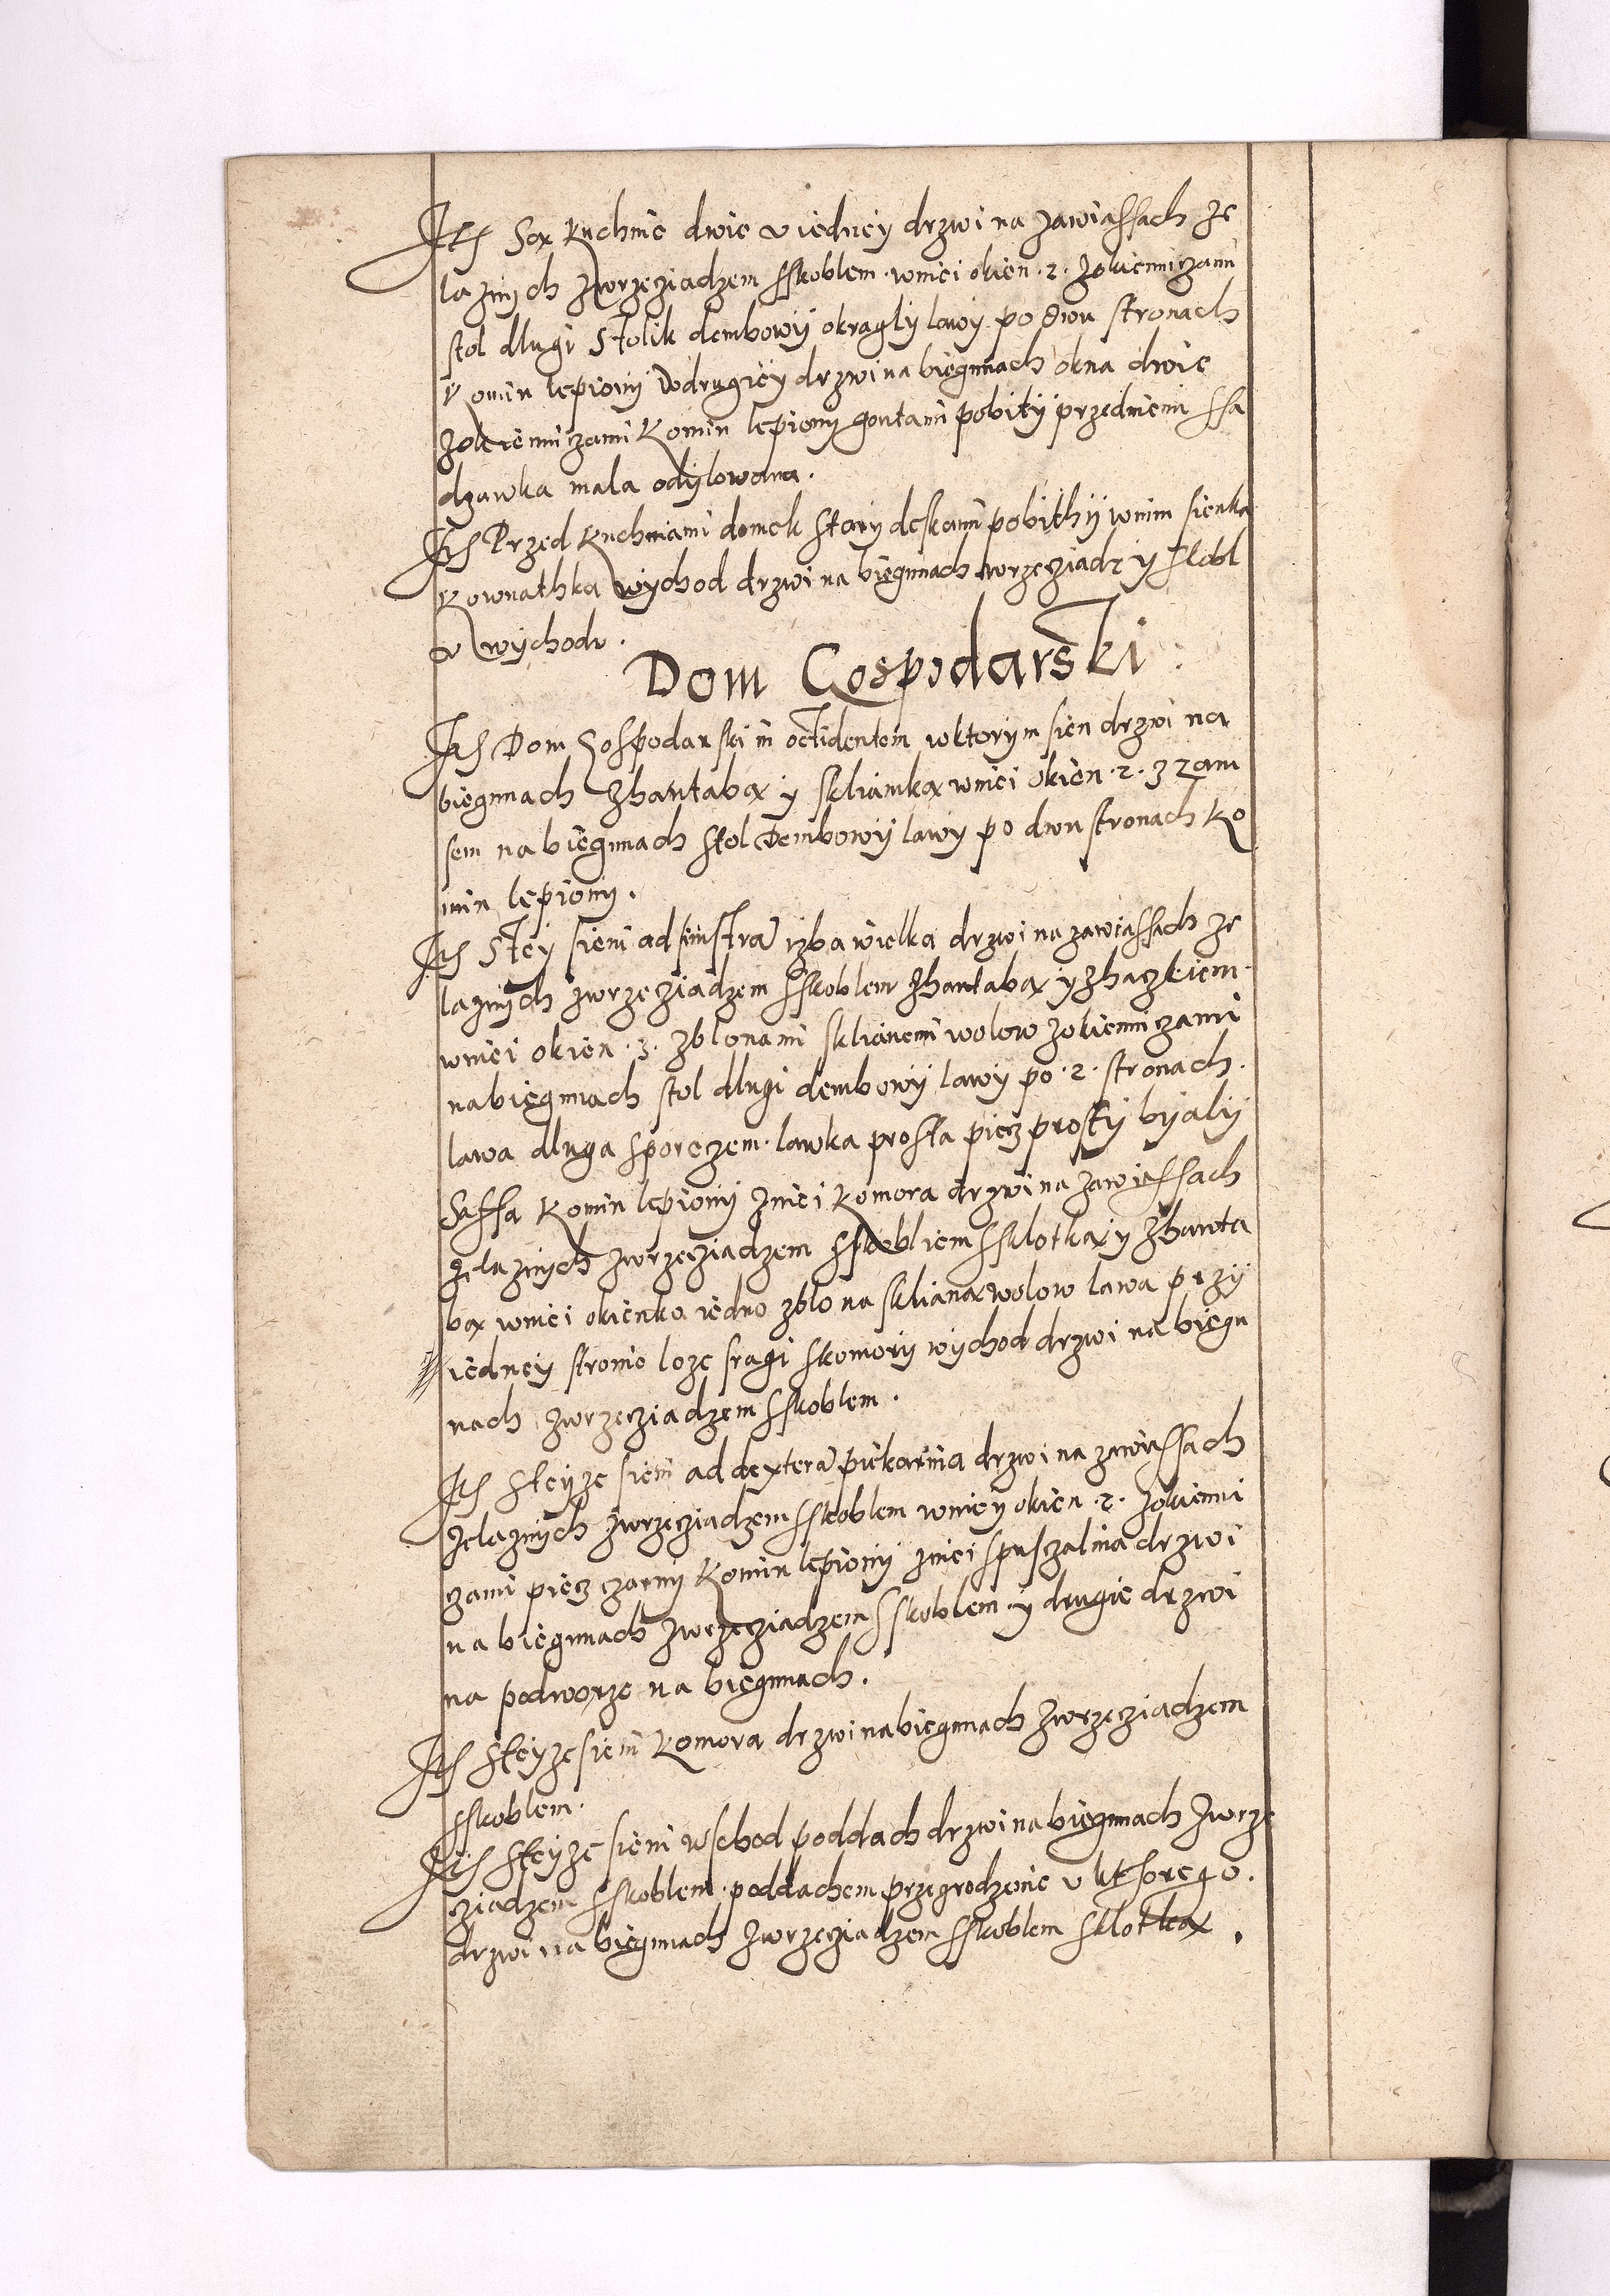 Ite Sąx Kuchnie dwie v iednei drzwi na zawiassach ze
laznych zwrzecziadzem sskoblem wniei okien .2. zokienniczami
stol dlugi stolik dembowy okragly lawy po dwu stronach
Komin lepiony Wdrugiey drzwi na biegunach okna dwie
zokienniczami Komin lepiony gontami pobity przedniemi ssa
dzawka mala odylowana.
Ite Przed Kuchniami domek stary deskami pobithy wnim sienka
Kownathka wychod drzwi na biegunach wrzecziadz y skobl
v wychodu.
Dom Gospodarski
Ite Dom Gospodarski in occidentem wktorym sien drzwi na
biegunach zhantabą y skliamką wniei okien .2. zzam
sem na biegunach stol Dembowy lawy po dwu stronach Ko
min lepiony.
Ite Stey sieni ad sinistra izba wielka drzwi na zawiassach ze
laznych zwrzecziadzem sskoblem zhantabą y zhaczkiem
wniei okien .3. zblonami sklianemi wolow zokienniczami
na biegunach stol dlugi dembowy lawy po .2. stronach.
lawa dluga sporeczem lawka prosta piecz prosty byaly
Saffa Komin lepiony zniei Komora drzwi na zawiassach
zelaznych zwrzecziadzem sskobliem ssklotką y zhanta
bą wniei okienko iedno zblona skliana wolow lawa przy
iedney stronie loze sragi skomory wychod drzwi na biegu
nach zwrzecziadzem sskoblem.
Ite steyze sieni ad dextera piekarnia drzwi na zawiassach
zelaznych zwrzecziadzem sskoblem wniey okien .2. zokienni
czami piecz czarny Komin lepiony zniei spuszalnia drzwi
na biegunach zwrzecziadzem sskoblem y drugie drzwi
na podworze na biegunach.
Ite steyze sieni Komora drzwi na biegunach zwrzecziadzem
sskoblem.
Ite steyze sieni wschod poddach drzwi na biegunach zwrze
cziadzem sskoblem poddachem przegrodzenie v ktorego.
drzwi na biegunach zwrzecziadzem sskoblem sklotką.